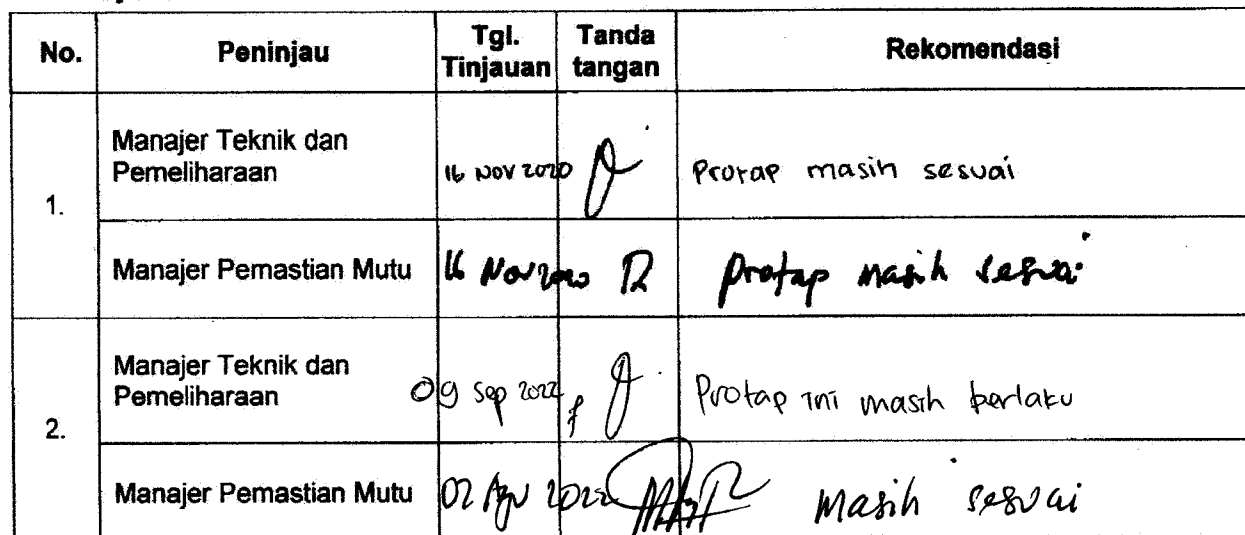 No. Peninjau Tgl. Tinjauan Tanda tangan Rekomendasi
1.
Manajer Teknik dan
Pemeliharaan 16 NOV 2020 Protap masih sesuai
Manajer Pemastian Mutu 16 Nov 2020 protap masih sesuai
2.
Manajer Teknik dan
Pemeliharaan 09 Sep 2022 Protap ini masih berlaku
Manajer Pemastian Mutu 02 Agu 2022 masih sesuai